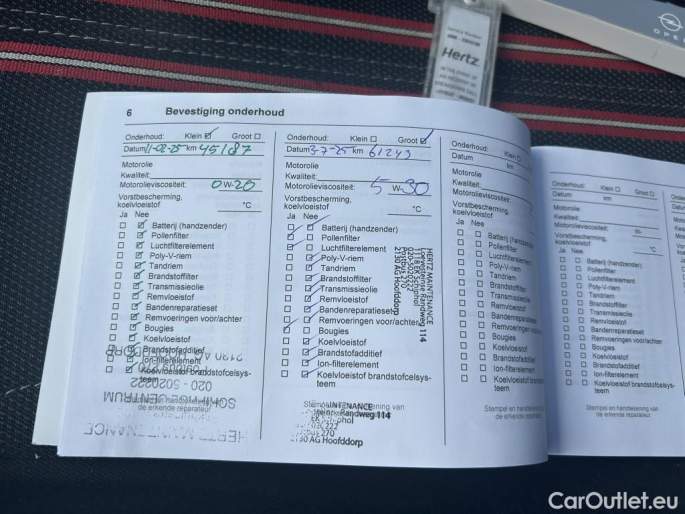 OPEL
Hertz
6 Bevestiging onderhoud
Onderhoud: Klein ☑ Groot ☐
Datum 11-02-25 km 45187
Motorolie
Kwaliteit:
Motorolieviscositeit: 0 W- 20
Vorstbescherming,
koelvloeistof °C
Ja Nee
☐ ☑ Batterij (handzender)
☐ ☑ Pollenfilter
☐ ☑ Luchtfilterelement
☐ ☑ Poly-V-riem
☐ ☑ Tandriem
☐ ☑ Brandstoffilter
☐ ☑ Transmissieolie
☐ ☑ Remvloeistof
☐ ☑ Bandenreparatieset
☐ ☑ Remvoeringen voor/achter
☐ ☑ Bougies
☐ ☑ Koelvloeistof
☐ ☑ Brandstofadditief
☐ ☑ Ion-filterelement
☐ ☑ Koelvloeistof brandstofcelsys-
teem
020 - 5020222
de erkende reparateur
HERTZ MAINTENANCE
Onderhoud: Klein ☐ Groot ☑
Datum 3-7-25 km 61243
Motorolie
Kwaliteit:
Motorolieviscositeit: 5 W- 30
Vorstbescherming,
koelvloeistof °C
Ja Nee
Batterij (handzender)
Pollenfilter
Luchtfilterelement
Poly-V-riem
Tandriem
Brandstoffilter
Transmissieolie
Remvloeistof
Bandenreparatieset
Remvoeringen voor/achter
Bougies
Koelvloeistof
Brandstofadditief
Ion-filterelement
Koelvloeistof brandstofcelsys-
teem
HERTZ MAINTENANCE
Loevesteinse Randweg 114
Postbus 270
2130 AG Hoofddorp
Randweg 114
2130 AG Hoofddorp
Onderhoud: Klein ☐
Datum km
Motorolie
Kwaliteit:
Motorolieviscositeit:
Vorstbescherming,
koelvloeistof
Ja Nee
☐ ☐ Batterij (handzend
☐ ☐ Pollenfilter
☐ ☐ Luchtfilterelement
☐ ☐ Poly-V-riem
☐ ☐ Tandriem
☐ ☐ Brandstoffilter
☐ ☐ Transmissieolie
☐ ☐ Remvloeistof
☐ ☐ Bandenreparatieset
☐ ☐ Remvoeringen
☐ ☐ Bougies
☐ ☐ Koelvloeistof
☐ ☐ Brandstofadditief
☐ ☐ Ion-filterelement
☐ ☐ Koelvloeistof brandstof
teem
Stempel en handtekening
de erkende reparateur
Onderhoud: Klein ☐ Groot ☐
Datum km
Motorolie
Kwaliteit:
Motorolieviscositeit: W-
Vorstbescherming,
koelvloeistof °C
Ja Nee
☐ ☐ Batterij (handzender)
☐ ☐ Pollenfilter
☐ ☐ Luchtfilterelement
☐ ☐ Poly-V-riem
☐ ☐ Tandriem
☐ ☐ Brandstoffilter
☐ ☐ Transmissieolie
☐ ☐ Remvloeistof
☐ ☐ Bandenreparatieset
☐ ☐ Remvoeringen voor/achter
☐ ☐ Bougies
☐ ☐ Koelvloeistof
☐ ☐ Brandstofadditief
☐ ☐ Ion-filterelement
☐ ☐ Koelvloeistof brandstofcelsys-
teem
Stempel en handtekening van
de erkende reparateur
CarOutlet.eu